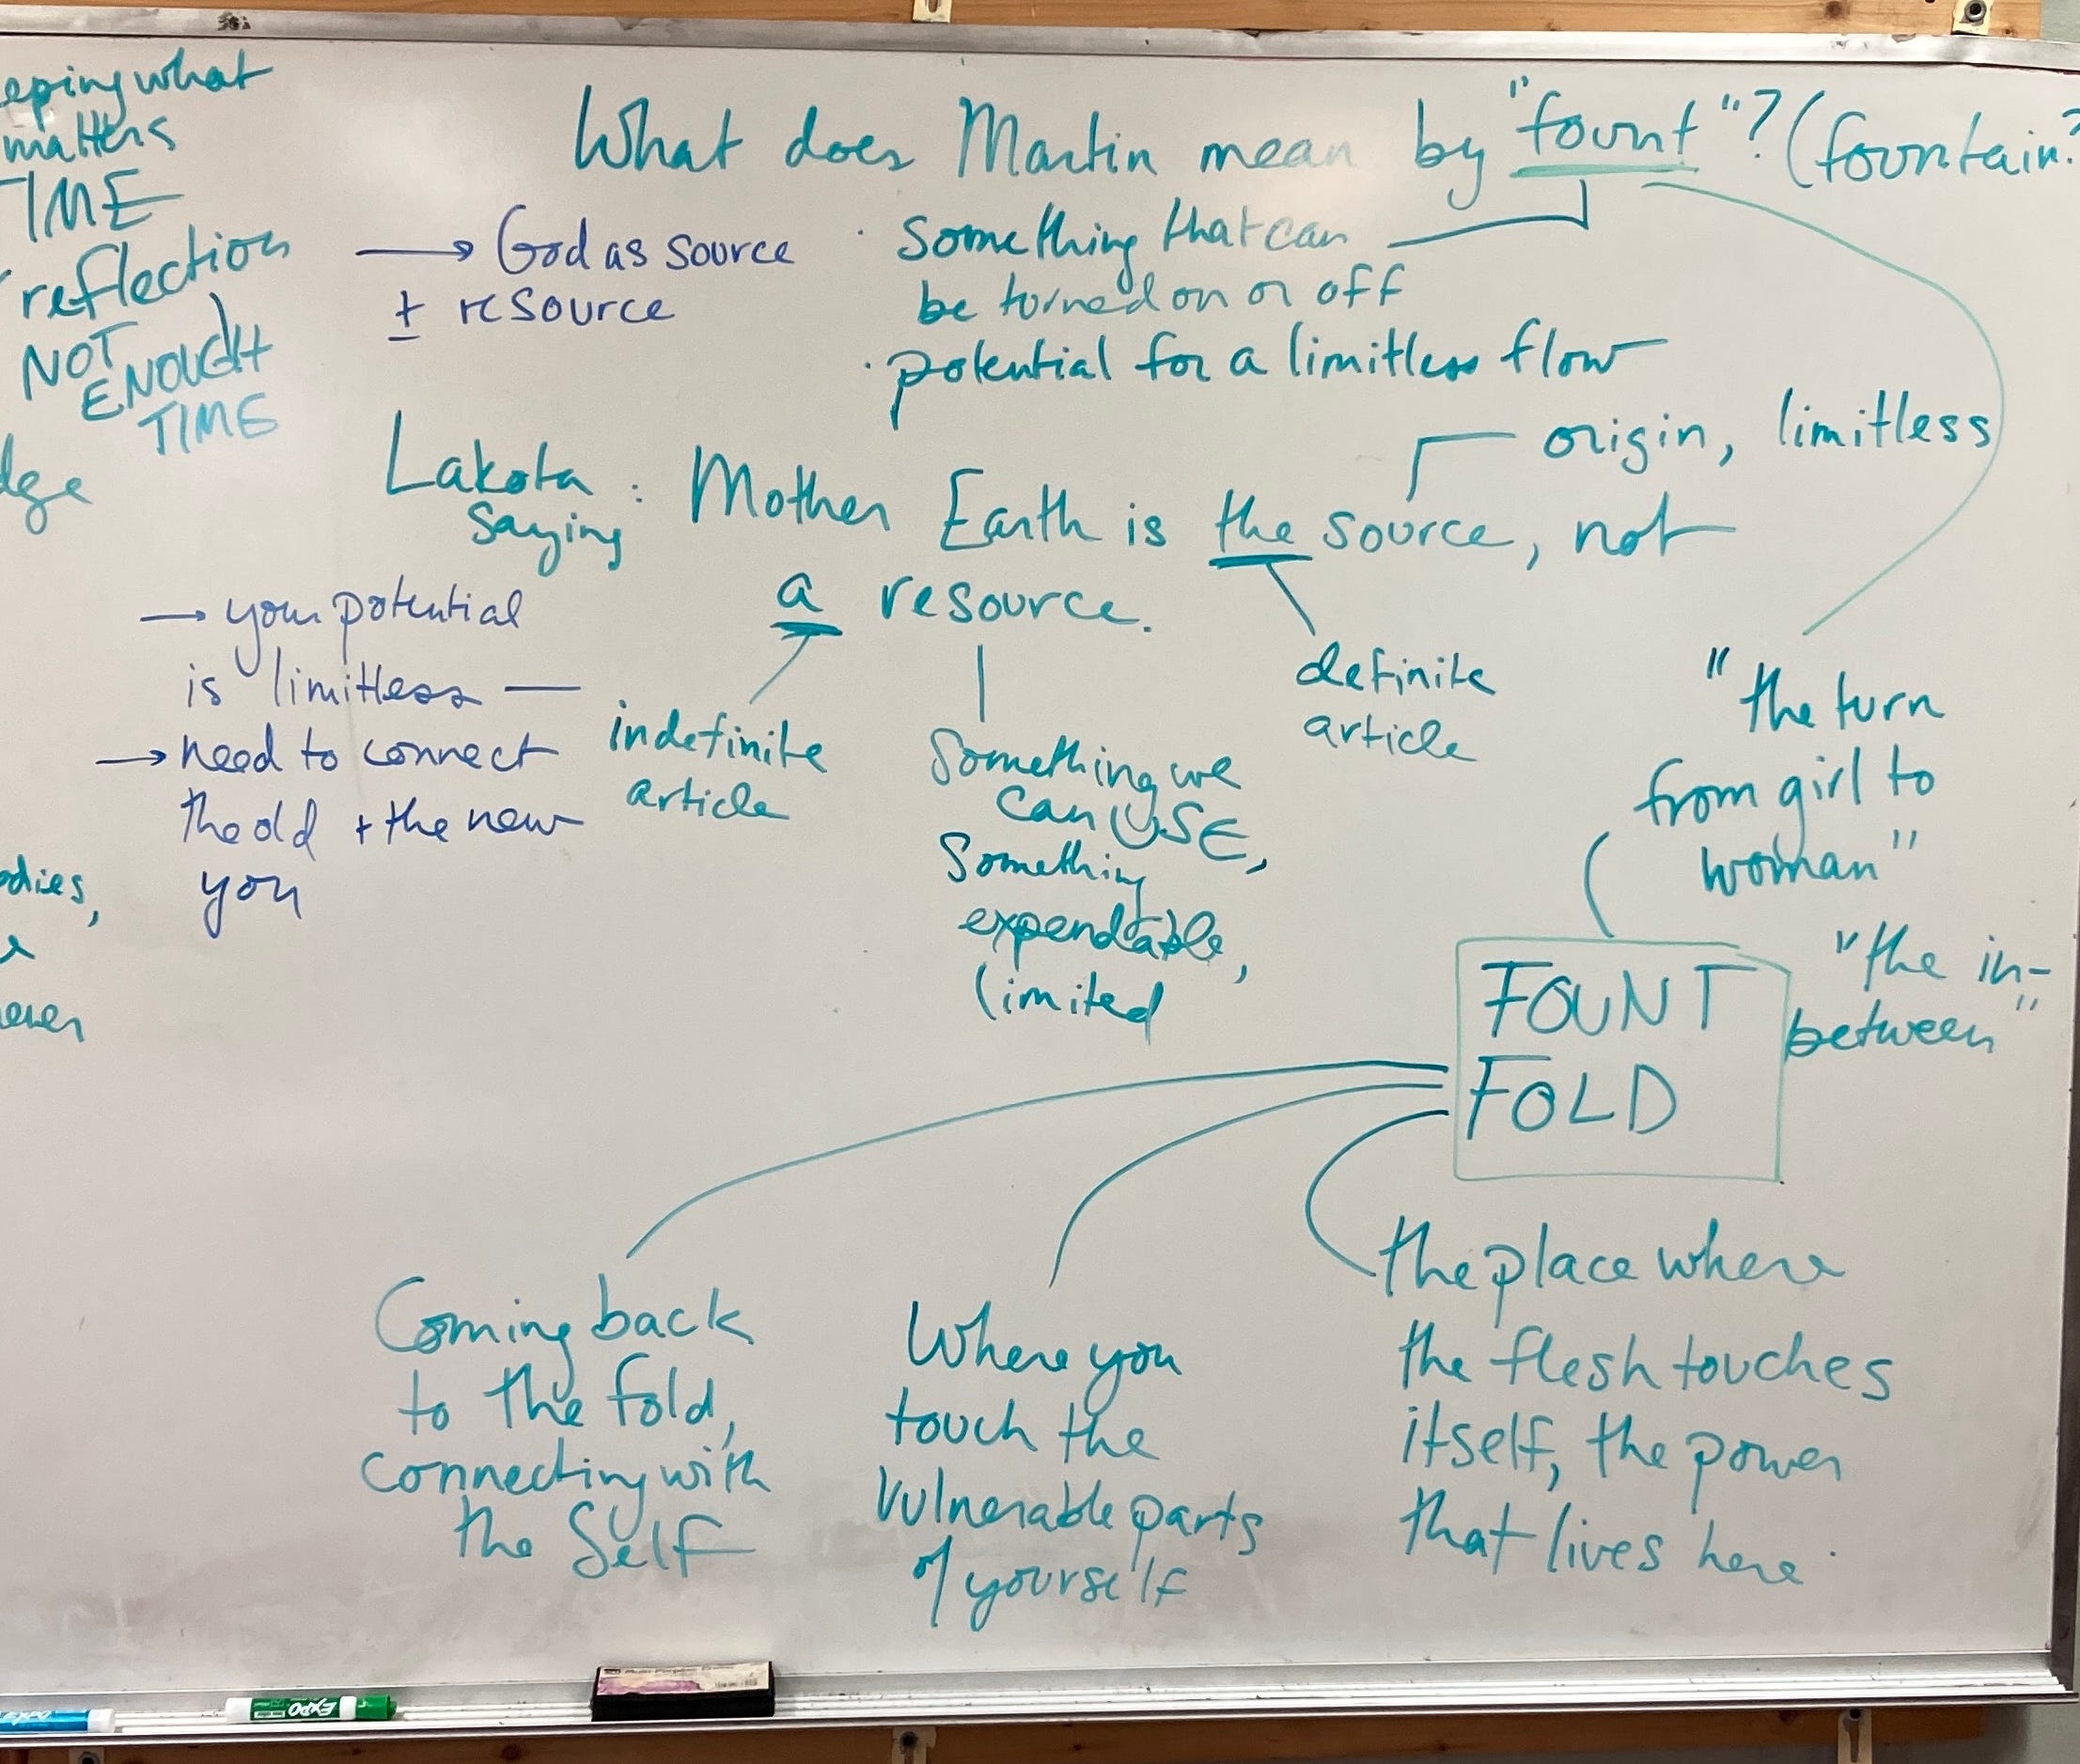 eping what
matters
TIME
reflection
NOT
ENOUGH
TIME
dge
odies,
What does Martin mean by "fount"? (fountain?
→ God as source
+ resource
· Something that can
be turned on or off
· potential for a limitless flow
origin, limitless
Lakota
saying : Mother Earth is the source, not
a resource.
indefinite
article
Something we
can USE,
Something
expendable,
limited
definite
article
→ your potential
is limitless —
→ need to connect
the old + the new
you
"the turn
from girl to
woman"
"the in-
between"
FOUNT
FOLD
Coming back
to the fold,
connecting with
the Self
Where you
touch the
vulnerable parts
of yourself
the place where
the flesh touches
itself, the power
that lives here.
EXPO